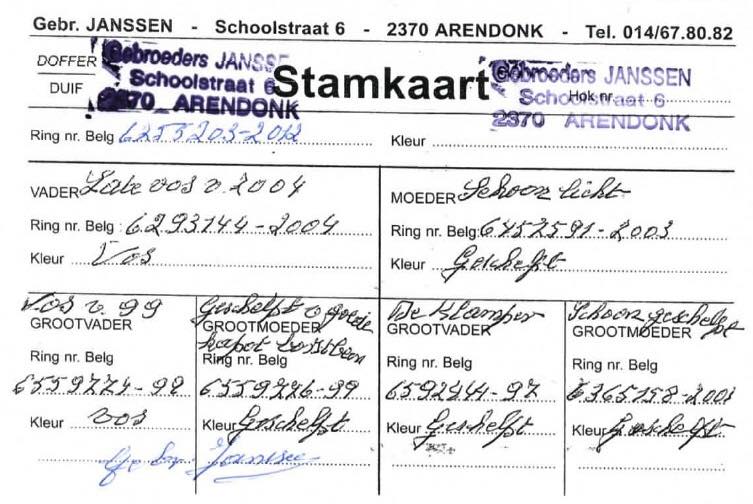 Gebr. JANSSEN - Schoolstraat 6 - 2370 ARENDONK - Tel. 014/67.80.82
DOFFER
DUIF
Gebroeders JANSSEN
Schoolstraat 6
2370 ARENDONK
Stamkaart
Gebroeders JANSSEN
Schoolstraat 6
2370 ARENDONK
Hok nr.
Ring nr. Belg 6255203-2012
Kleur
VADER Late vos v. 2004
Ring nr. Belg : 6293144-2004
Kleur Vos
MOEDER Schoon licht
Ring nr. Belg: 6457591-2003
Kleur Geschelpt
Vos v. 99
GROOTVADER
Ring nr. Belg
Kleur vos
Geschelpt v goeie
kapot
GROOTMOEDER
Ring nr. Belg
Kleur Geschelpt
De Klamper
GROOTVADER
Ring nr. Belg
Kleur Geschelpt
Schoon geschelpt
GROOTMOEDER
Ring nr. Belg
Kleur Geschelpt
Janssen